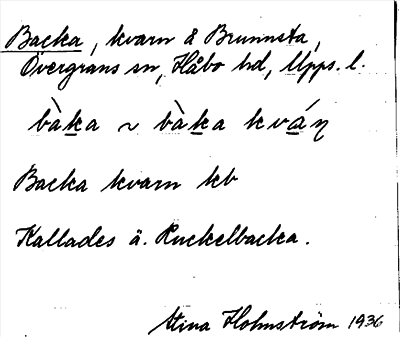 Backa, kvarn å Brunnsta,
Övergrans sn, Håbo hd, Upps. l.
bàka ~ bàka kváṇ
Backa kvarn kb
Kallades ä. Ruckelbacka.
Stina Holmström 1936